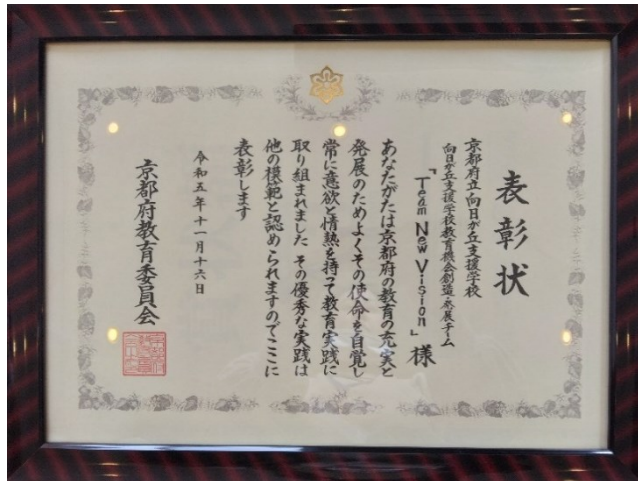 表彰状
京都府立向日が丘支援学校
向日が丘支援学校教育機会創造・発展チーム
「Team New Vision」様
あなたがたは京都府の教育の充実と
発展のためよくその使命を自覚し
常に意欲と情熱を持って教育実践に
取り組まれました その優秀な実践は
他の模範と認められますのでここに
表彰します
令和五年十一月十六日
京都府教育委員会